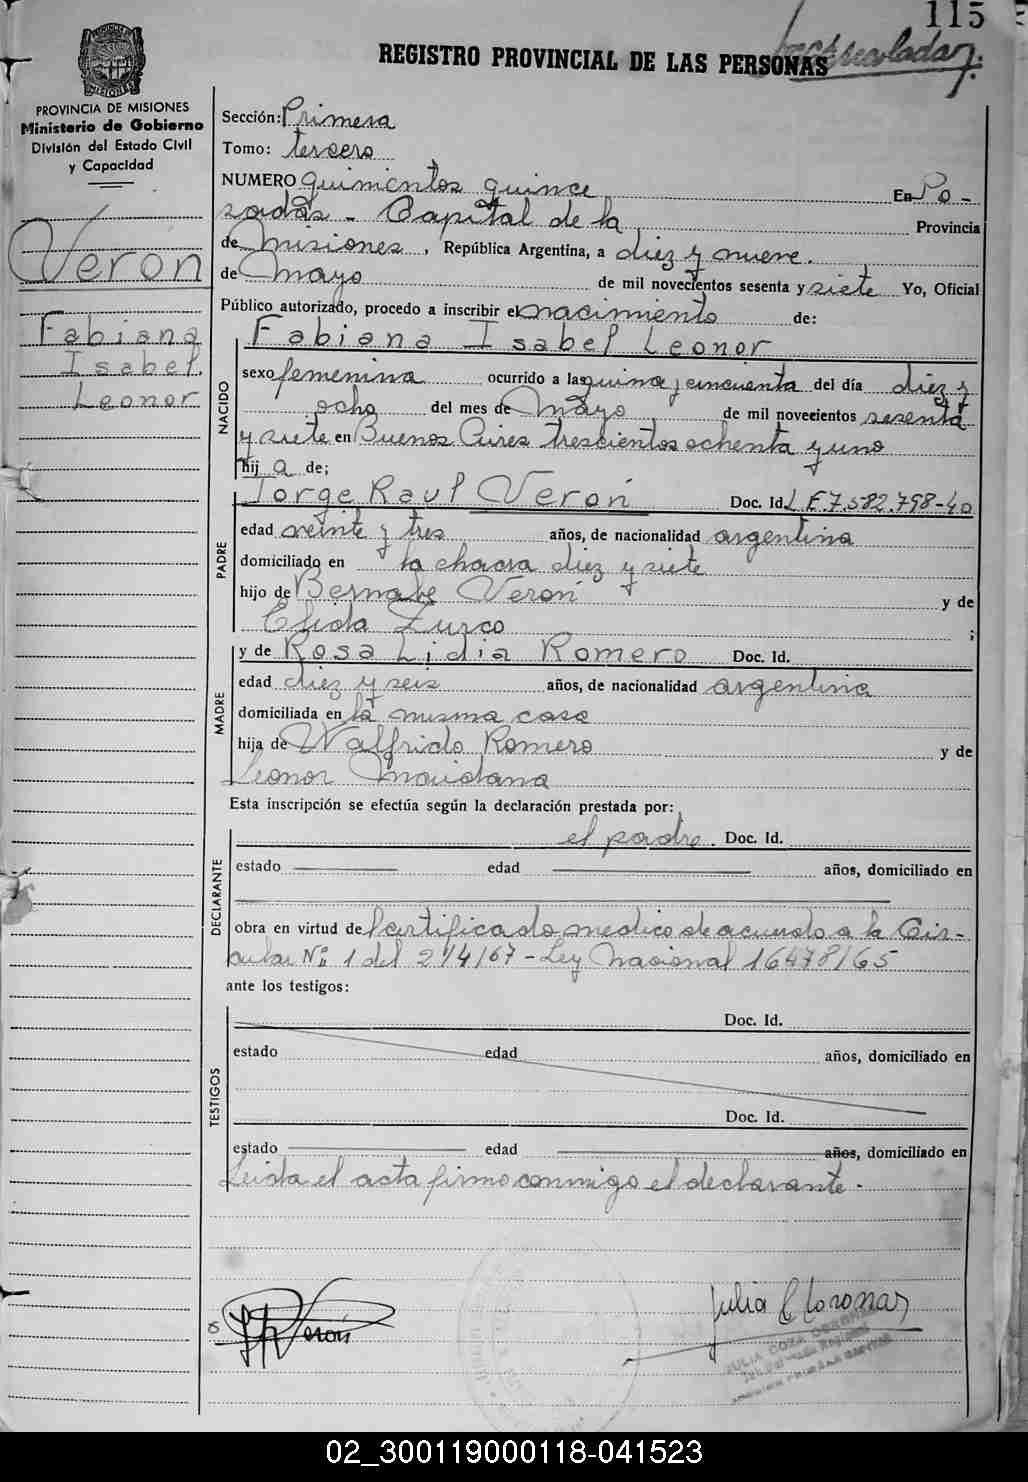 115
REGISTRO PROVINCIAL DE LAS PERSONAS
PROVINCIA DE MISIONES
Ministerio de Gobierno
División del Estado Civil
y Capacidad
Veron
Fabiana
Isabel
Leonor
Sección: Primera
Tomo: tercero
NUMERO quinientos quince En Po-
sadas - Capital de la Provincia
de Misiones, República Argentina, a diez y nueve.
de Mayo de mil novecientos sesenta y siete Yo, Oficial
Público autorizado, procedo a inscribir el nacimiento de:
NACIDO
Fabiana Isabel Leonor
sexo femenina ocurrido a las quina y cincuenta del día diez y
ocho del mes de Mayo de mil novecientos sesenta
y siete en Buenos Aires trescientos ochenta y uno
hij a de;
PADRE
Jorge Raul Verón Doc. Id. L.E.7.582.798-40
edad veinte y tres años, de nacionalidad argentina
domiciliado en la chacra diez y siete
hijo de Bernabe Verón y de
Elida Zurco ;
MADRE
y de Rosa Lidia Romero Doc. Id.
edad diez y seis años, de nacionalidad argentina
domiciliada en la misma casa
hija de Walfrido Romero y de
Leonor Maidana
Esta inscripción se efectúa según la declaración prestada por:
DECLARANTE
el padre. Doc. Id.
estado edad años, domiciliado en
obra en virtud de certificado medico de acuerdo a la Cir-
cular Nº 1 del 2/4/67 - Ley Nacional 16478/65
ante los testigos:
TESTIGOS
Doc. Id.
estado edad años, domiciliado en
Doc. Id.
estado edad años, domiciliado en
Leida el acta firmo conmigo el declarante.
Verón
Julia C
JULIA
02_300119000118-041523